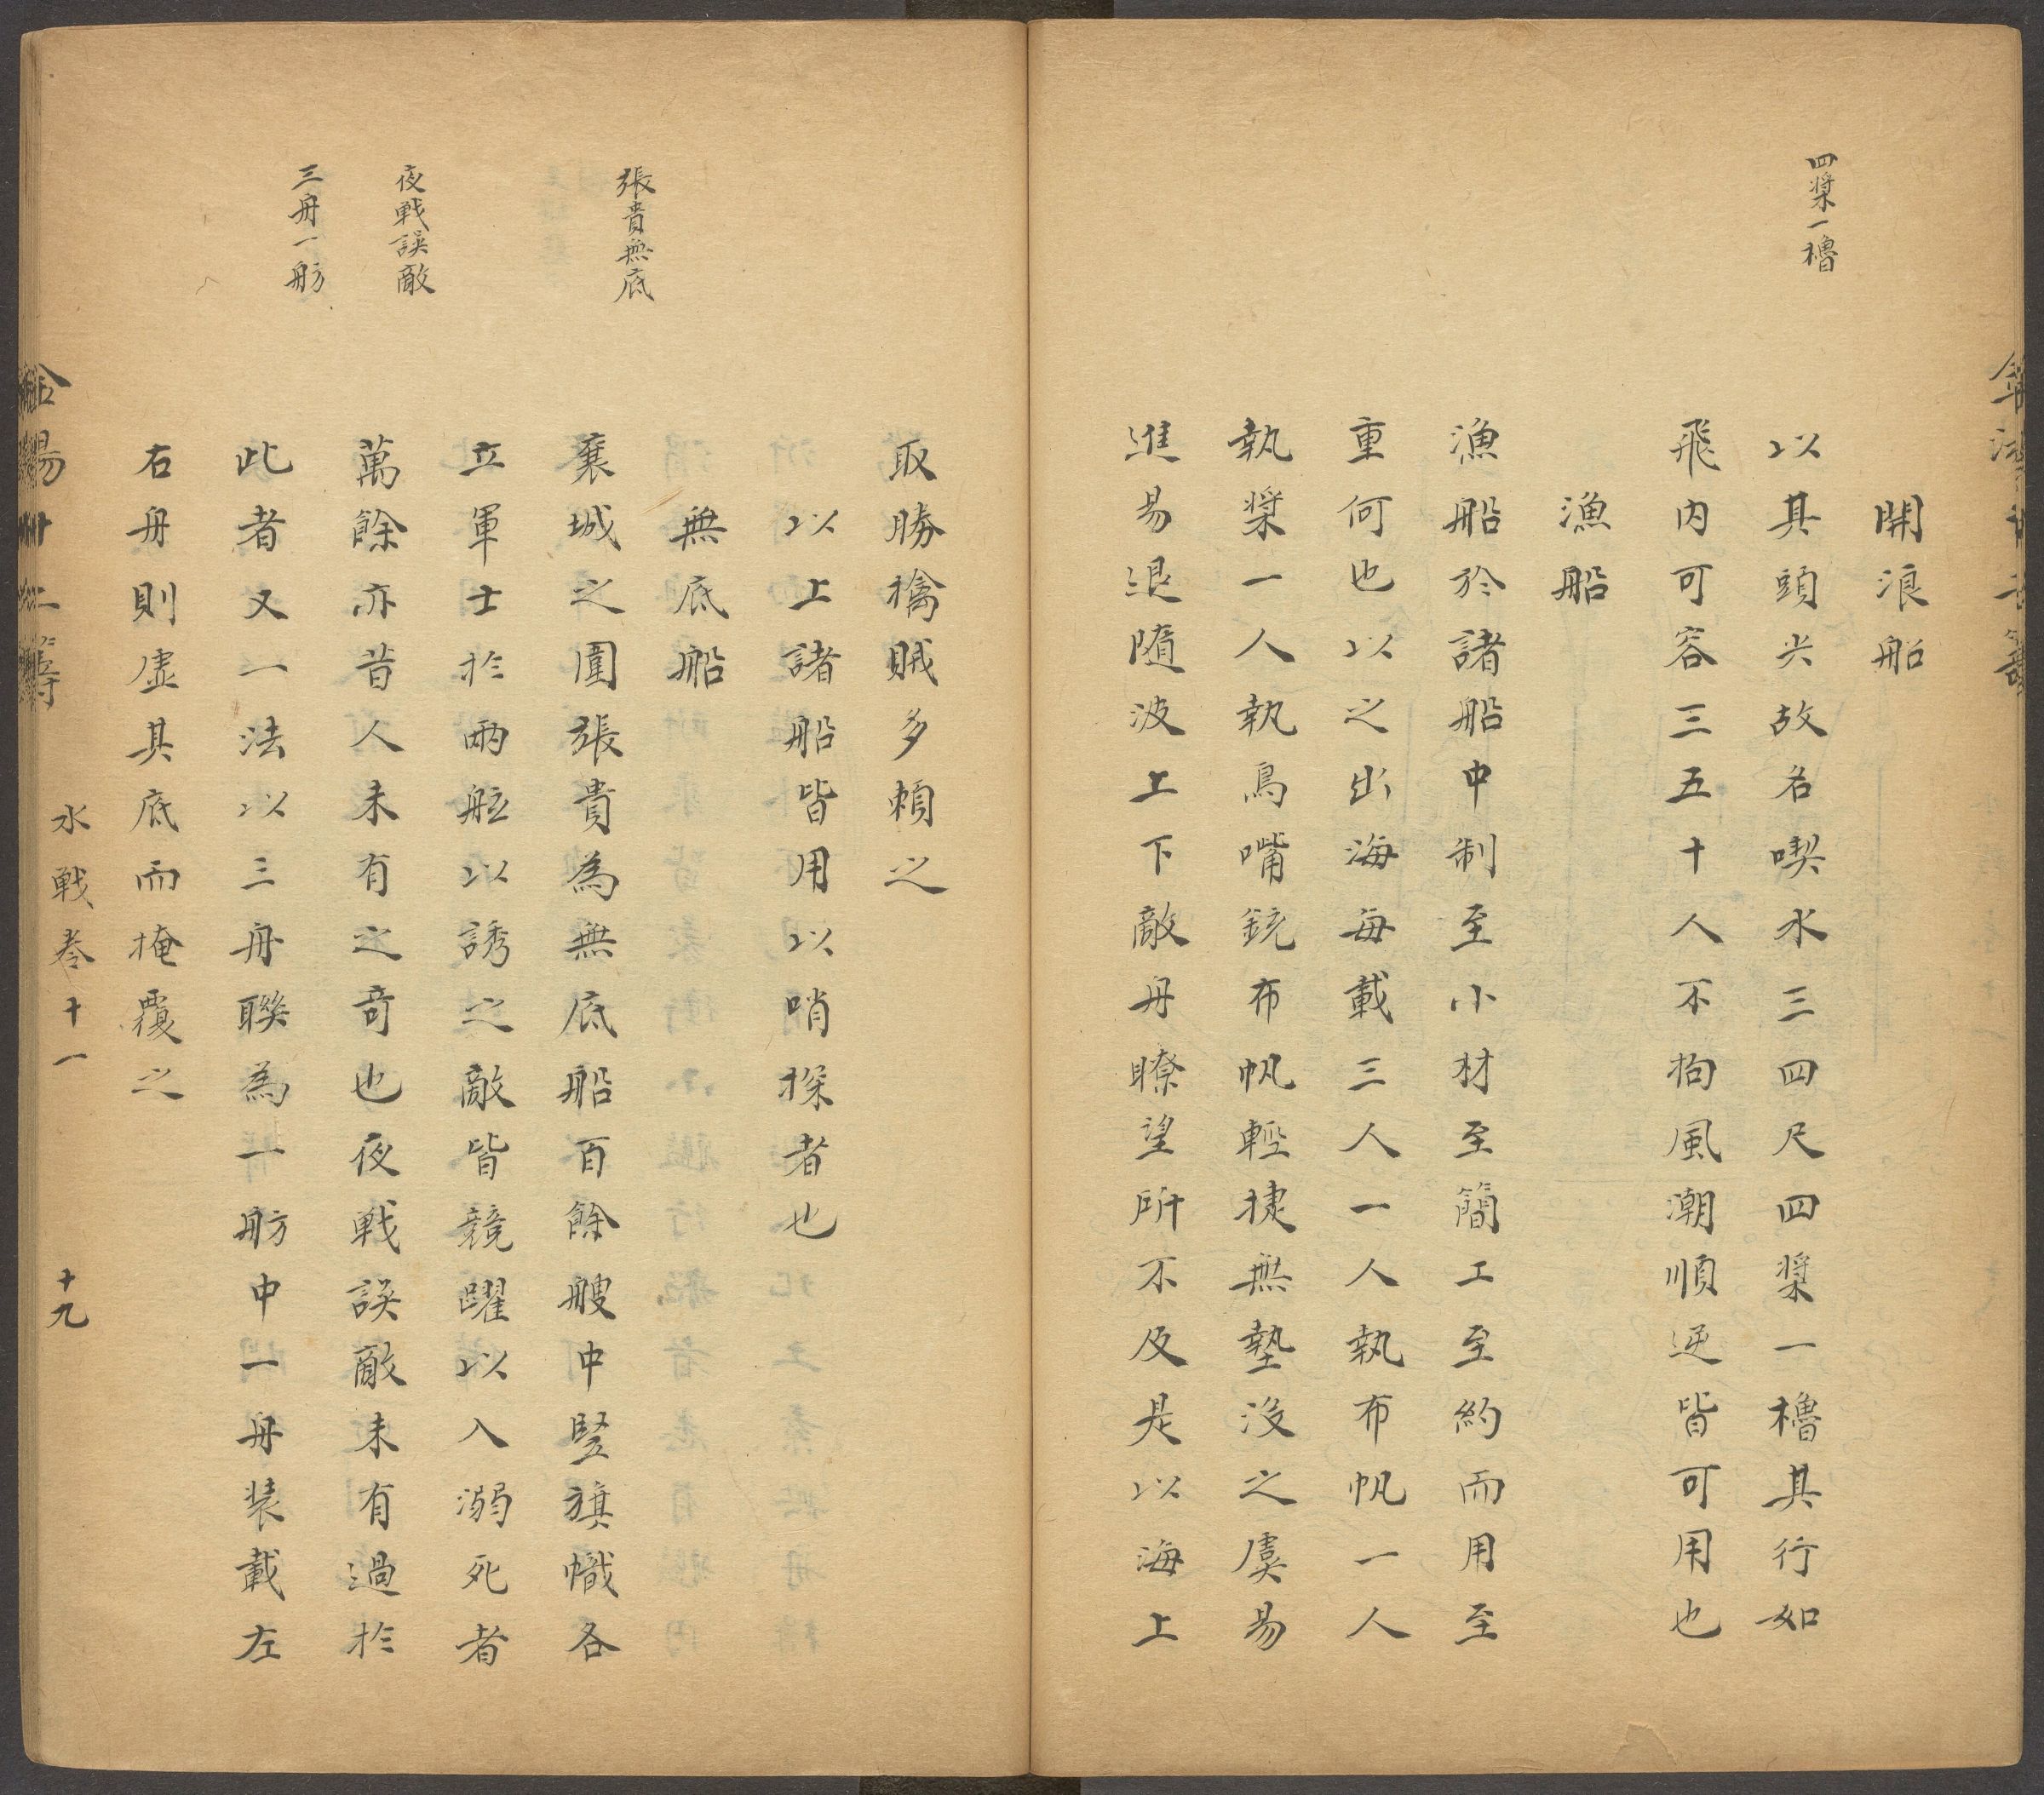 四槳一櫓
開浪船
以其頭尖故名喫水三四尺四槳一櫓其行如
飛内可容三五十人不拘風潮順逆皆可用也
漁船
漁船於諸船中制至小材至簡工至約而用至
重何也以之出海每載三人一人執布帆一人
執槳一人執鳥嘴銃布帆輕捷無墊没之虞易
進易退隨波上下敵舟瞭望所不及是以海上
取勝擒賊多賴之
以上諸船皆用以哨探者也
張貴無底
無底船
襄城之圍張貴為無底船百餘艘中竪旗幟各
立軍士於兩舷以誘之敵皆競躍以入溺死者
夜戰誤敵
萬餘亦昔人未有之奇也夜戰誤敵未有過於
三舟一舫
此者又一法以三舟聯為一舫中一舟装載左
右舟則虚其底而掩覆之
水戰卷十一
十九